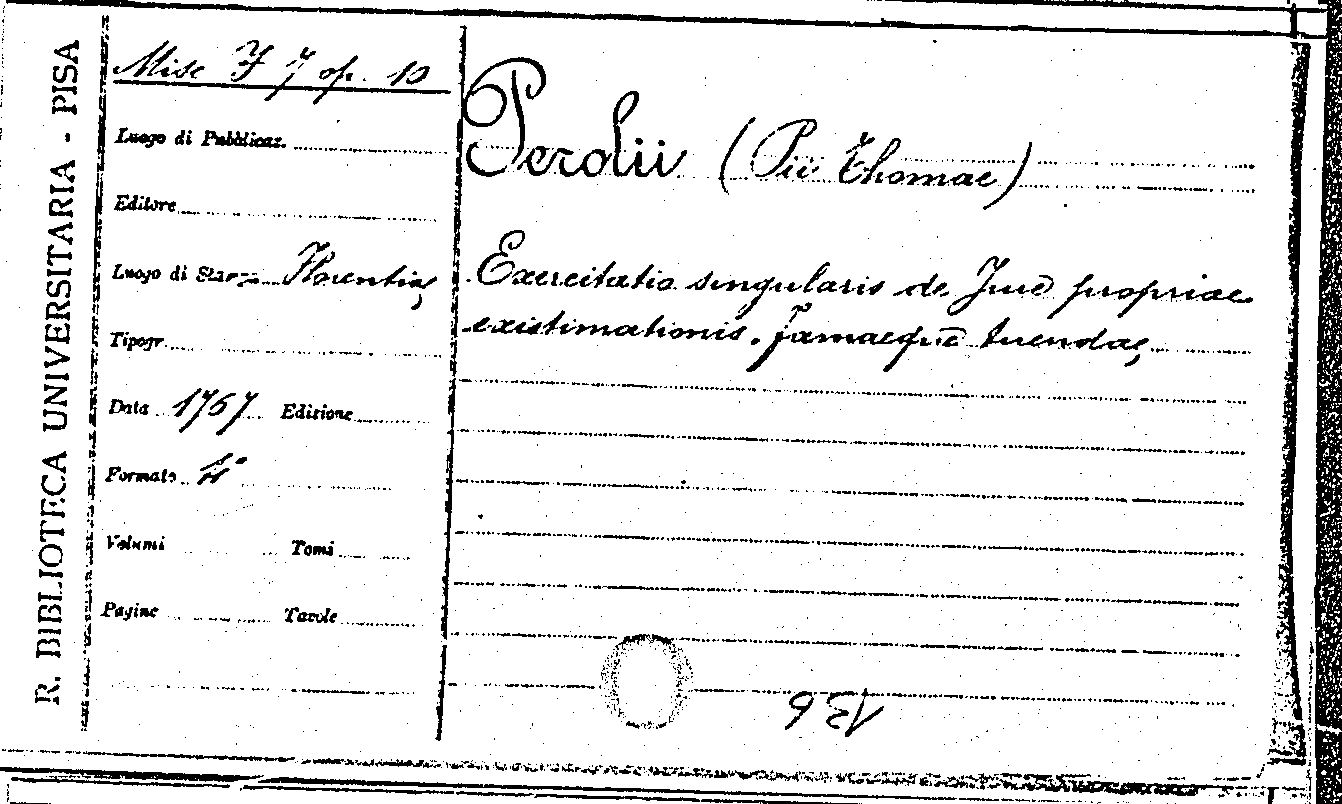 R. BIBLIOTECA UNIVERSITARIA - PISA
Misc F 7 op. 10
Luogo di Pubblicaz.
Editore
Luogo di Stampa Florentiae
Tipogr.
Data 1767 Edizione
Formato 4°
Volumi Tomi
Pagine Tavole
Perolii (Pii Thomae)
Exercitatio singularis de Jure propriae
existimationis, famaeque tuendae
136